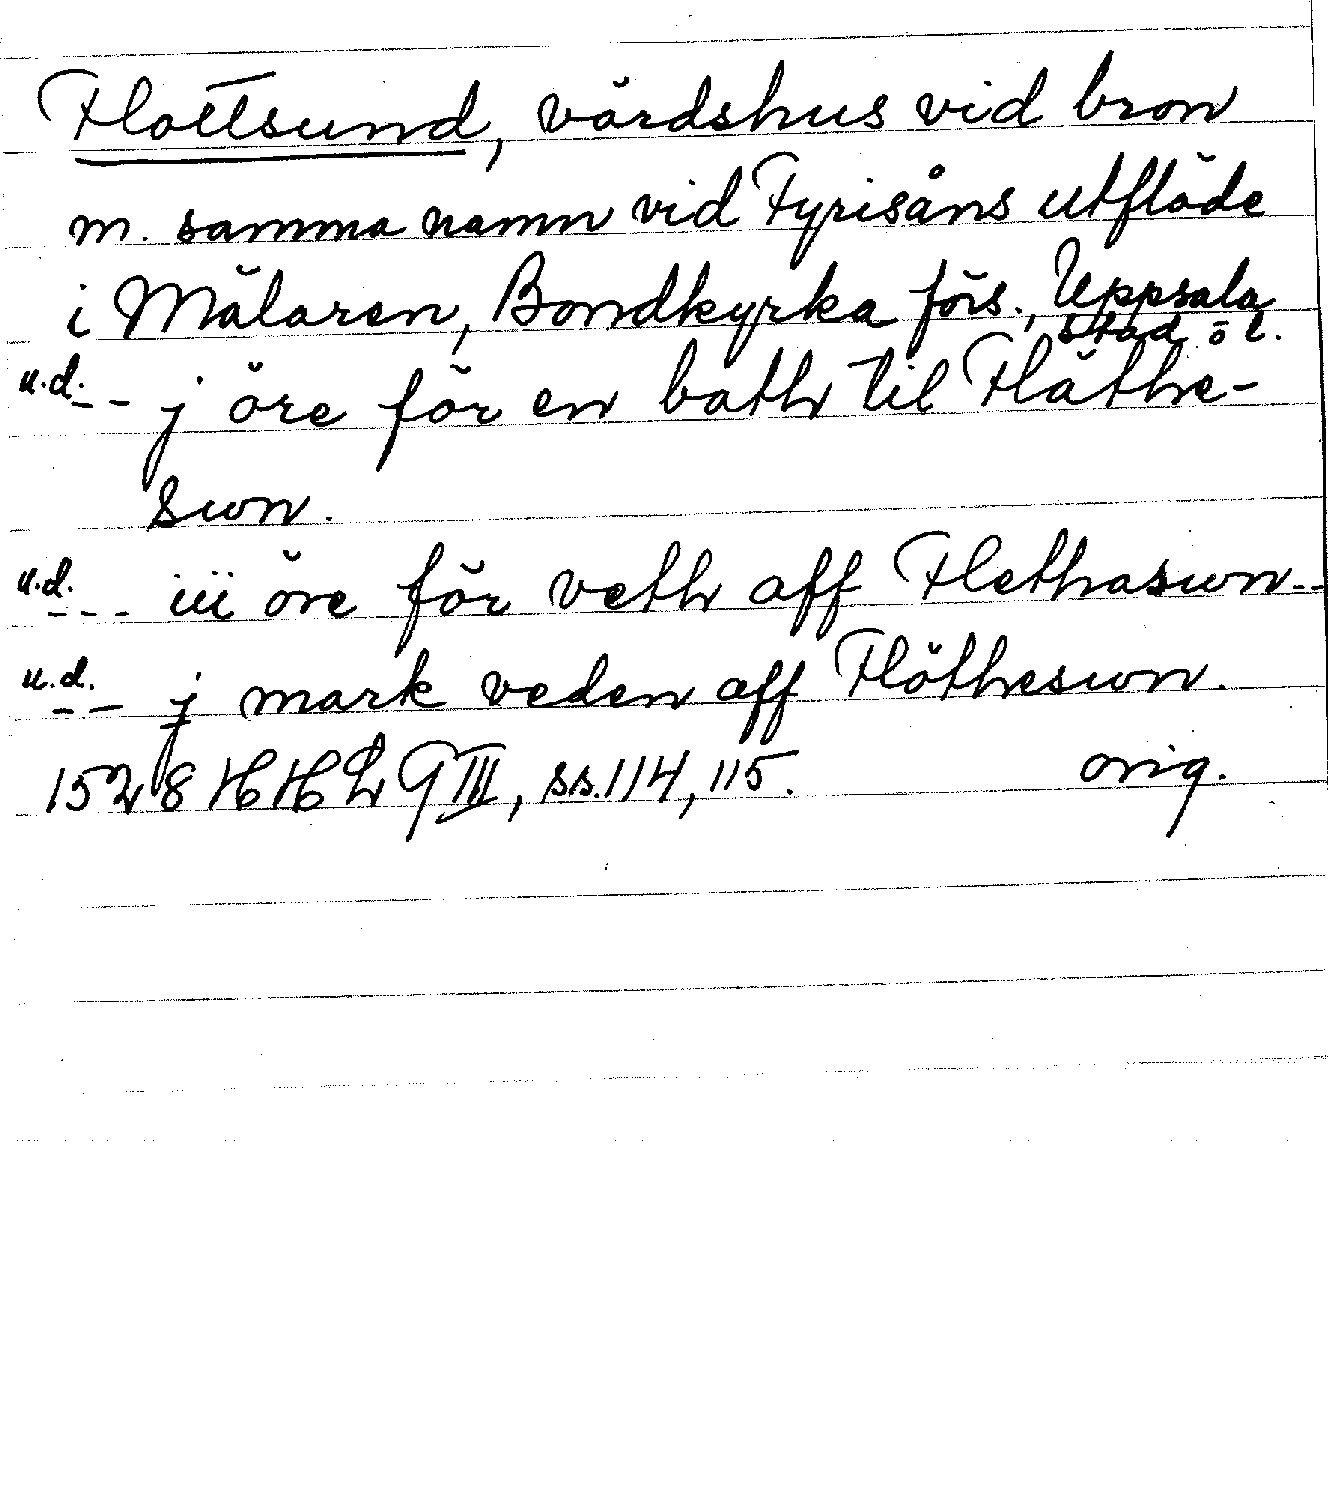 Flottsund, värdshus vid bron
m. samma namn vid Fyrisåns utflöde
i Mälaren, Bondkyrka förs., Uppsala
stad ö l.
u.d. -- j öre för en bath til Fläthe-
swn.
u.d. --- iii öre för veth aff Flethaswn--
u.d. -- j mark veden aff Flötheswn.
1528 HHL G III, ss. 114, 115. orig.